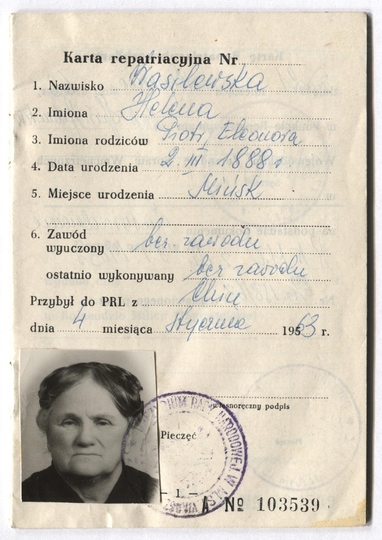 Karta repatriacyjna Nr
1. Nazwisko Wasilewska
2. Imiona Helena
3. Imiona rodziców Piotr, Eleonora
4. Data urodzenia 2. III 1888 r
5. Miejsce urodzenia Mińsk
6. Zawód
wyuczony bez zawodu
ostatnio wykonywany bez zawodu
Przybył do PRL z Chin
dnia 4 miesiąca stycznia 1963 r.
własnoręczny podpis
Pieczęć
— 1 —
A № 103539